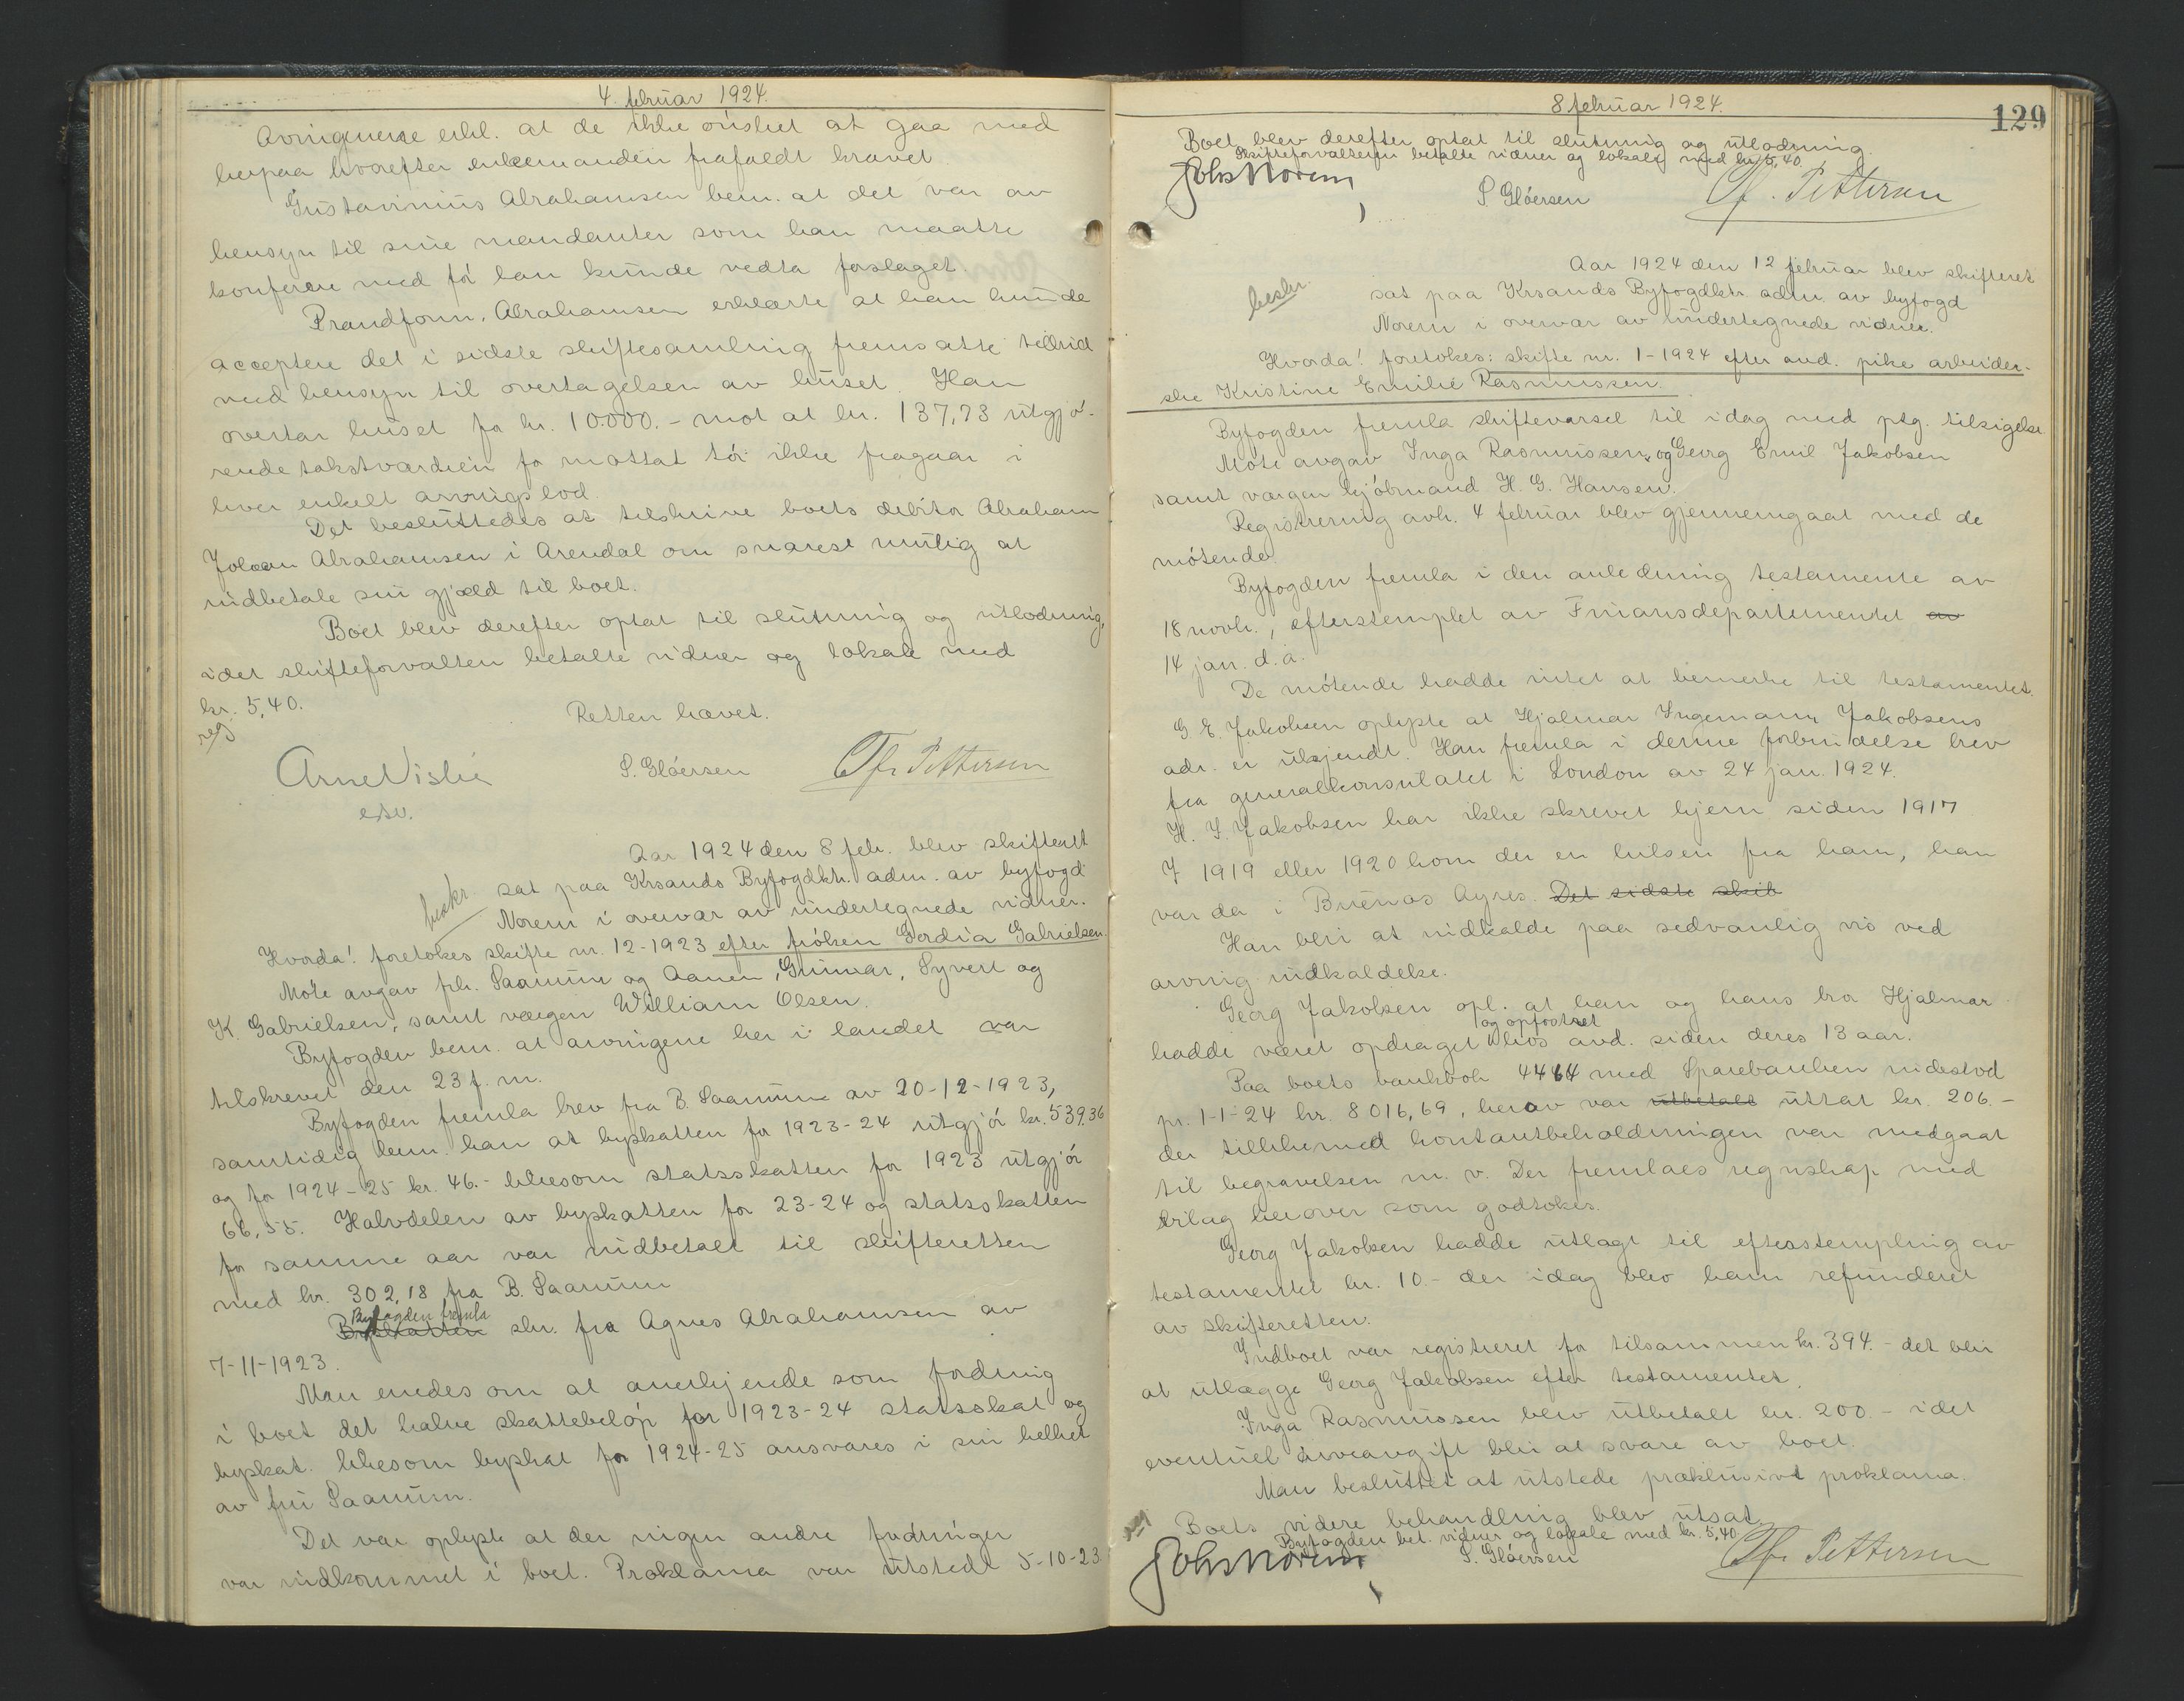 4. februar 1924.
Arvingnerne erkl. at de ikke ønsket at gaa med
herpaa hvorefter enkemanden frafaldt kravet.
Gustavinius Abrahamsen bem. at det var av
hensyn til sine mandanter som han maatte
konferere med før han kunde vedta forslaget.
Abrahamsen erklærte at han kunde
acceptere det i sidste skiftesamling fremsatte
med hensyn til overtagelsen av huset. Han
overtar huset for kr. 10.000.- mot at kr. 137,73 utgjø-
rende takstværdien for mottat tøi ikke fragaar i
hver enkelt arvingslod.
Det besluttedes at tilskrive boets debitor Abraham
Johan Abrahamsen i Arendal om snarest mulig at
indbetale sin gjæld til boet.
Boet blev derefter optat til slutning og utlodning,
idet skifteforvalteren betalte vidner og lokale med
kr. 5,40.
reg
Retten hævet.
Arne Vislie
S. Gløersen
Th. Pettersen
esv.
Aar 1924 den 8 feb. blev skifterett
beskr. sat paa Krsands Byfogdktr. adm. av byfogd
Norem i overvær av undertegnede vidner.
Hvorda! foretokes skifte nr. 12-1923 efter frøken Gerdia Gabrielsen.
Møte avgav frk. Saanum og Aanen, Gunvar, Syvert og
K. Gabrielsen, samt værgen William Olsen.
Byfogden bem. at arvingene her i landet var
tilskrevet den 23 f. m.
Byfogden fremla brev fra B. Saanum av 20-12-1923,
samtidig bem. han at byskatten for 1923-24 utgjør kr. 539,36
og for 1924-25 kr. 46.- likesom statsskatten for 1923 utgjør
66,55. Halvdelen av byskatten for 23-24 og statsskatten
for samme aar var indbetalt til skifteretten
med kr. 302,18 fra B. Saanum
Byfogden fremla
Byskatten skr. fra Agnes Abrahamsen av
7-11-1923.
Man enedes om at anerkjende som fordring
i boet det halve skattebeløp for 1923-24 statsskat og
byskat. likesom byskat for 1924-25 ansvares i sin helhet
av frk Saanum.
Det var oplyst at der ingen andre fordringer
var indkommet i boet. Proklama var utstedt 5-10-23.
8 februar 1924.
129
Boet blev derefter optat til slutning og utlodning.
Skifteforvalteren betalte vidner og lokale med kr. 5,40.
Johs Norem
S. Gløersen
Th. Pettersen
Aar 1924 den 12 februar blev skifteret
beskr. sat paa Krsands Byfogdktr. adm. av byfogd
Norem i overvær av undertegnede vidner.
Hvorda! foretokes: skifte nr. 1-1924 efter avd. pike arbeider-
ske Kristine Emilie Rasmussen.
Byfogden fremla skiftevarsel til idag med ptg. tilsigelse.
Møte avgav Inga Rasmussen, og Georg Emil Jakobsen
samt værgen kjøbmand H. G. Hansen.
Registrering avh. 4 februar blev gjennemgaat med de
møtende.
Byfogden fremla i den anledning testamente av
18 novb., efterstemplet av Finansdepartementet av
14 jan. d. a.
De møtende hadde intet at bemerke til testamentet.
G. E. Jakobsen oplyste at Hjalmar Ingemann Jakobsens
adr. er ukjendt. Han fremla i denne forbindelse brev
fra generalkonsulatet i London av 24 jan. 1924.
H. I. Jakobsen har ikke skrevet hjem siden 1917
I 1919 eller 1920 kom der en hilsen fra ham, han
var da i Buenos Ayres. Det sidste skib
Han blir at indkalde paa sedvanlig vis ved
arving indkaldelse.
Georg Jakobsen opl. at han og hans bror Hjalmar
og opfostret
hadde været opdraget hos avd. siden deres 13 aar.
Paa boets bankbok 4464 med Sparebanken indestod
pr. 1-1-24 kr. 8016,69, herav var utbetalt uttat kr. 206.-
der tillikemed kontantbeholdningen var medgaat
til begravelsen m. v. Der fremlaes regnskap med
bilag herover som godtokes.
Georg Jakobsen hadde utlagt til efterstempling av
testamentet kr. 10.- der idag blev ham refunderet
av skifteretten.
Indboet var registreret for tilsammen kr. 394.- det blir
at utlægge Georg Jakobsen efter testamentet.
Inga Rasmussen blev utbetalt kr. 200.- idet
eventuel arveavgift blir at svare av boet.
Man besluttet at utstede præklusivt proklama.
reg
Boets videre behandling blev utsat.
Byfogden bet. vidner og lokale med kr. 5,40.
Johs Norem
S. Gløersen
Th. Pettersen